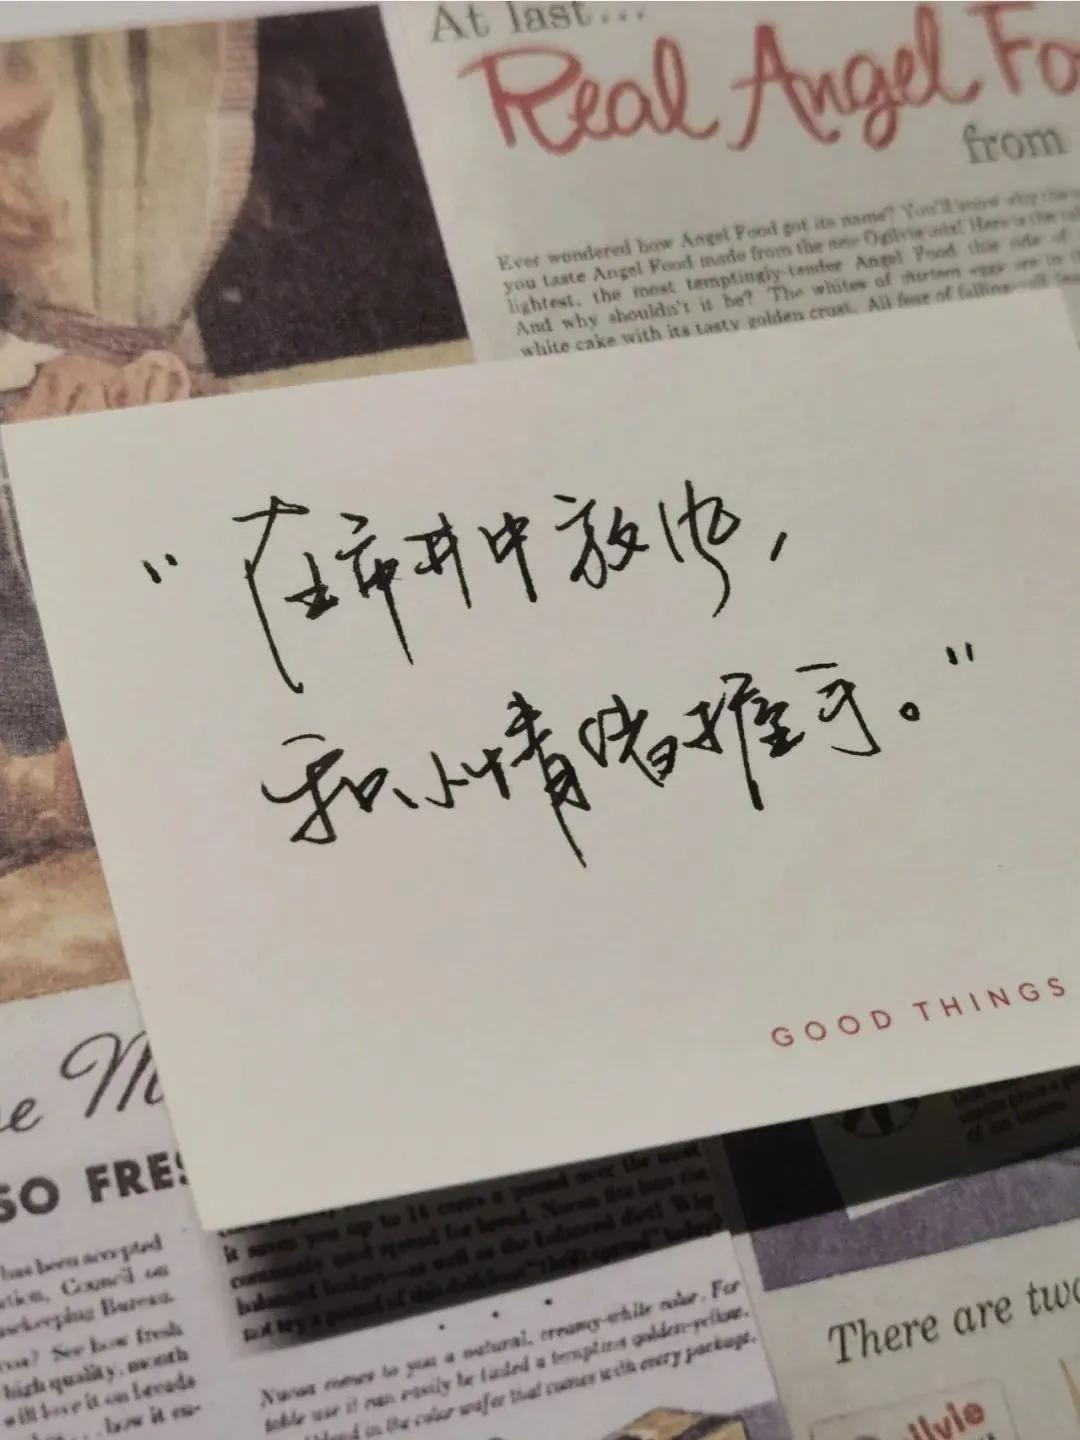 At last...
Real Angel Fo
from
Ever wondered how Angel Food got its name? You'll know why the
you taste Angel Food made from the new Ogilvie mix! Here is the
lightest, the most temptingly-tender Angel Food this side of
And why shouldn't it be? The whites of thirteen eggs are in
white cake with its tasty golden crust. All fear of falling—all
"在市井中放逐,
和小情绪推手。"
GOOD THINGS
SO FRES
has been accepted
Council on
Bureau.
See how fresh
high quality, month
will love it on breads
... how it
it saves you up to 14 cents a pound over the most
commonly used spread for bread. Nucoa fits into the
budget—as well as the balanced diet! Why
not try a pound of this delicious "thrift spread" today?
Nucoa comes to you a natural, creamy-white color. For
table use it can easily be tinted a tempting golden-yellow.
blend in the color wafer that comes with every package.
There are two